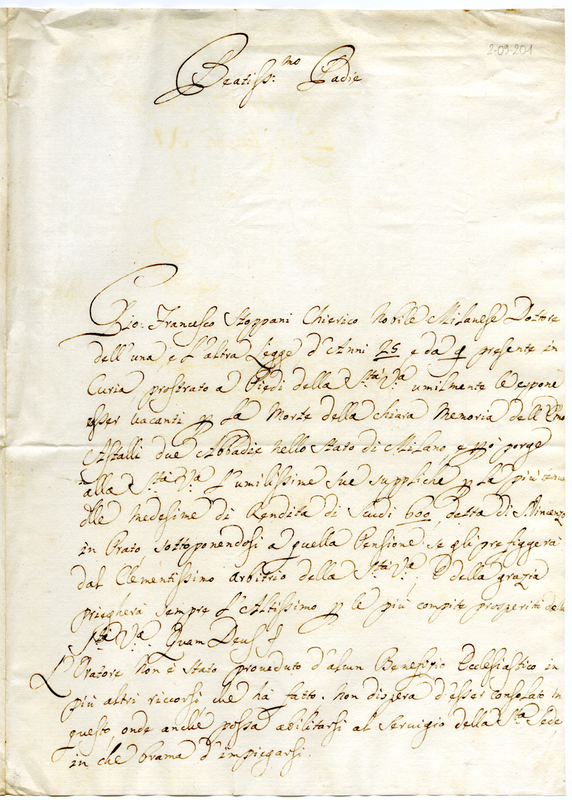 2-09-201
Beatiss:mo Padre
Gio: Francesco Stoppani Chierico Nobile Milanese Dottore
dell'una, e l'altra Legge d'Anni 25 e da q presente in
Curia, prostrato a Piedi della S.tà V.a umilmente le espone
esser vacanti p la Morte della chiara Memoria dell' Em̃o
Astalli due Abbadie nello Stato di Milano e pciò porge
alla S.tà V.a l'umilissime sue suppliche p la più tenue
dlle medesime di Rendita di Scudi 600, detta di S. Vincenzo
in Prato sottoponendosi a quella Pensione se gli prefiggerà
dal Clementissimo arbitrio della S.tà V.a, e della grazia
pregherà sempre l'Altissimo p le più compite prosperità della
S.tà V.a Quam Deus
L'Oratore non è stato proveduto d'alcun Benefizio Ecclesiastico in
più altri riccorsi che ha fatto. non dispera d'esser consolato in
questo, onde anche possa abilitarsi al Servigio della S.ta Sede
in che brama d'impiegarsi.